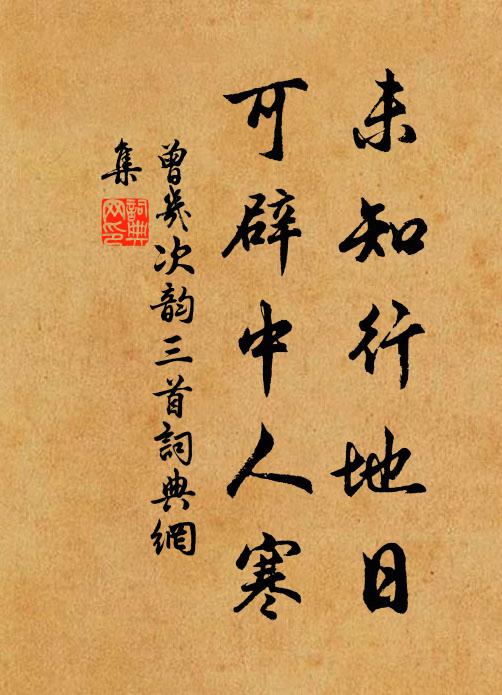 未知行地日
可辟中人寒
曾幾次韵三首詞典網
集
詞典
网印